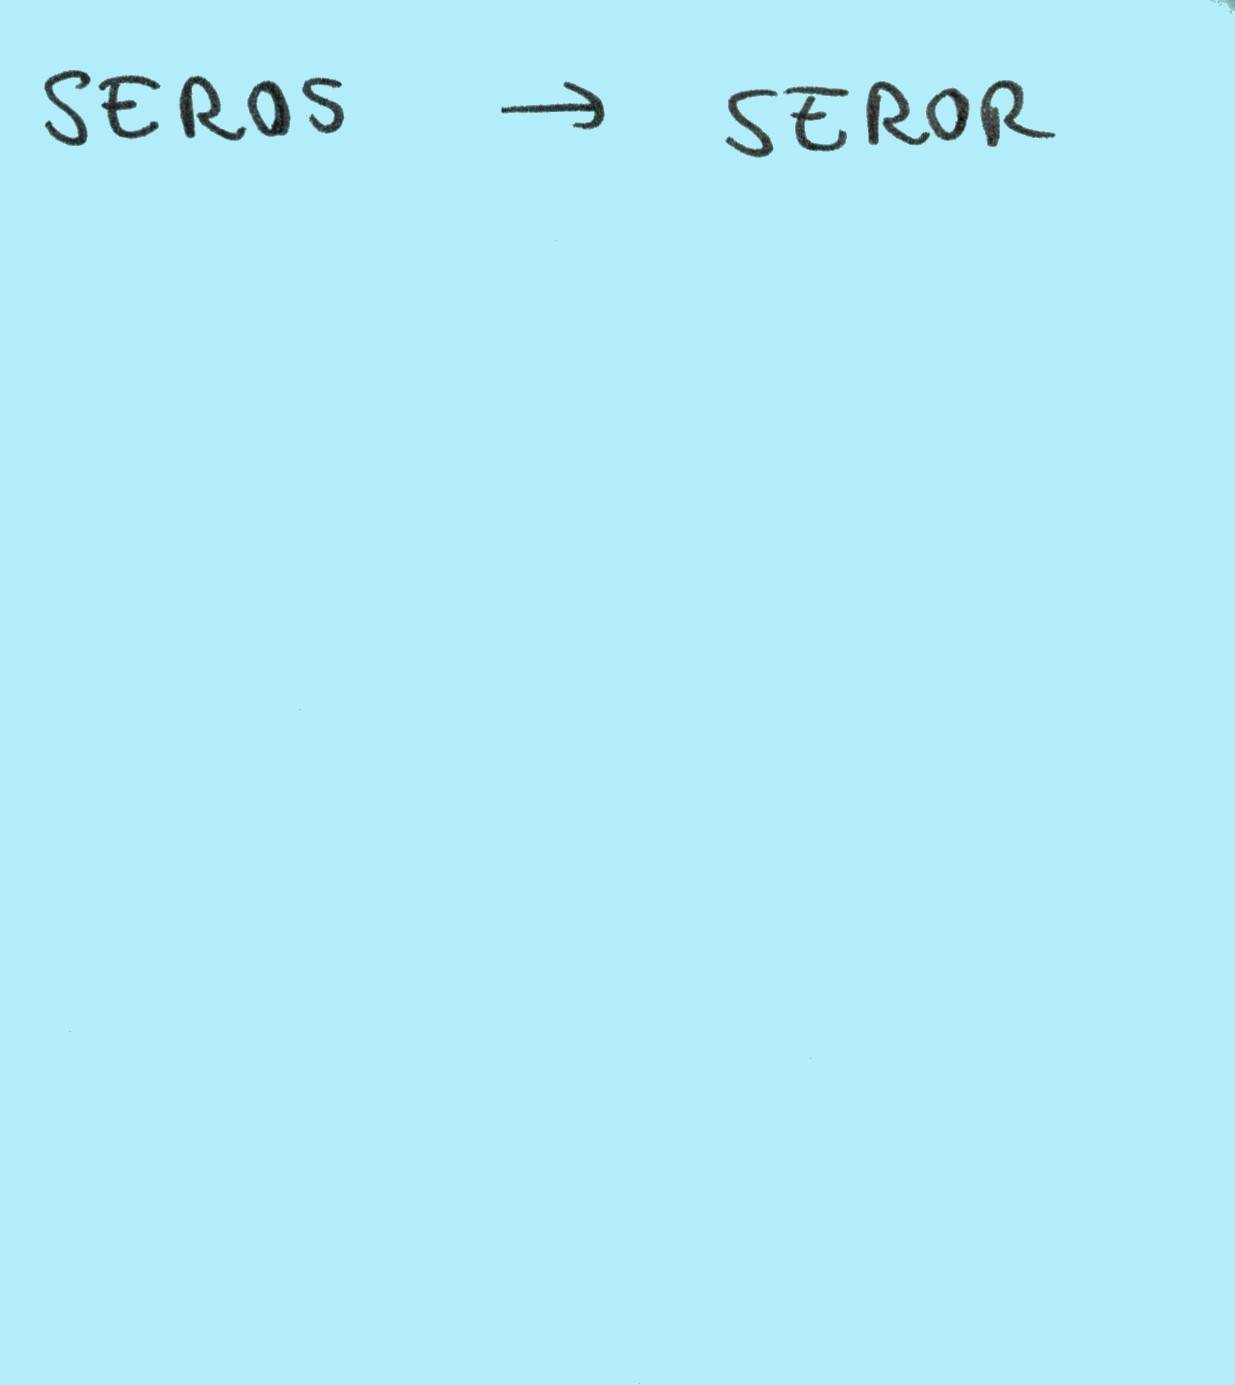 SEROS → SEROR